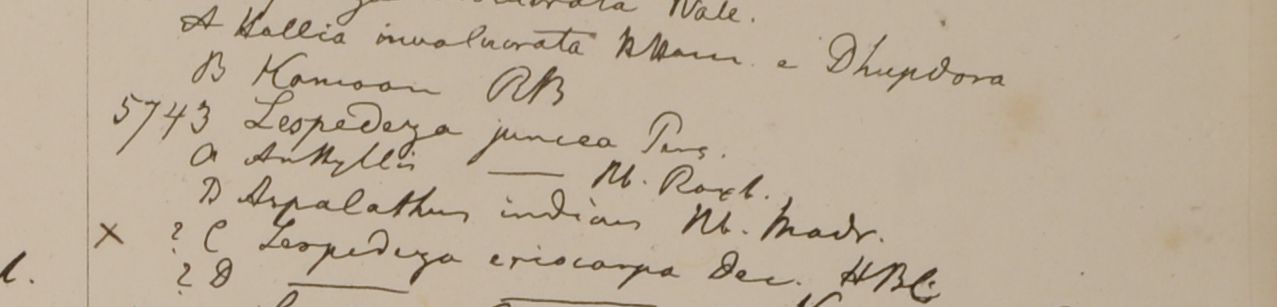 Wall.
A Hallia involucrata HHam. e Dhupdora
B Kamoon RB
5743 Lespedeza juncea Pers.
a Anthyllis — Hb. Roxb.
B Aspalathus indicus Hb. Madr.
x ? C Lespedeza eriocarpa Dec. HBC
l.
? D —